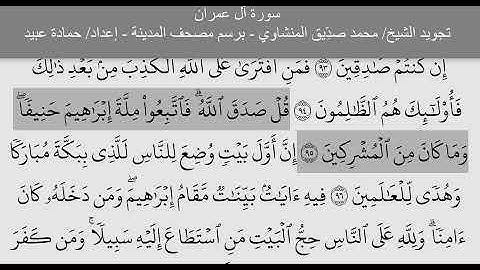 سورة آل عمران
تجويد الشيخ/ محمد صدّيق المنشاوي - برسم مصحف المدينة - إعداد/ حمادة عبيد
إِن كُنتُمْ صَٰدِقِينَ ٩٣ فَمَنِ ٱفْتَرَىٰ عَلَى ٱللَّهِ ٱلْكَذِبَ مِنۢ بَعْدِ ذَٰلِكَ
فَأُو۟لَٰٓئِكَ هُمُ ٱلظَّٰلِمُونَ ٩٤ قُلْ صَدَقَ ٱللَّهُ ۗ فَٱتَّبِعُوا۟ مِلَّةَ إِبْرَٰهِيمَ حَنِيفًا ۖ
وَمَا كَانَ مِنَ ٱلْمُشْرِكِينَ ٩٥ إِنَّ أَوَّلَ بَيْتٍ وُضِعَ لِلنَّاسِ لَلَّذِى بِبَكَّةَ مُبَارَكًا
وَهُدًى لِّلْعَٰلَمِينَ ٩٦ فِيهِ ءَايَٰتٌۢ بَيِّنَٰتٌ مَّقَامُ إِبْرَٰهِيمَ ۖ وَمَن دَخَلَهُۥ كَانَ
ءَامِنًا ۗ وَلِلَّهِ عَلَى ٱلنَّاسِ حِجُّ ٱلْبَيْتِ مَنِ ٱسْتَطَاعَ إِلَيْهِ سَبِيلًا ۚ وَمَن كَفَرَ